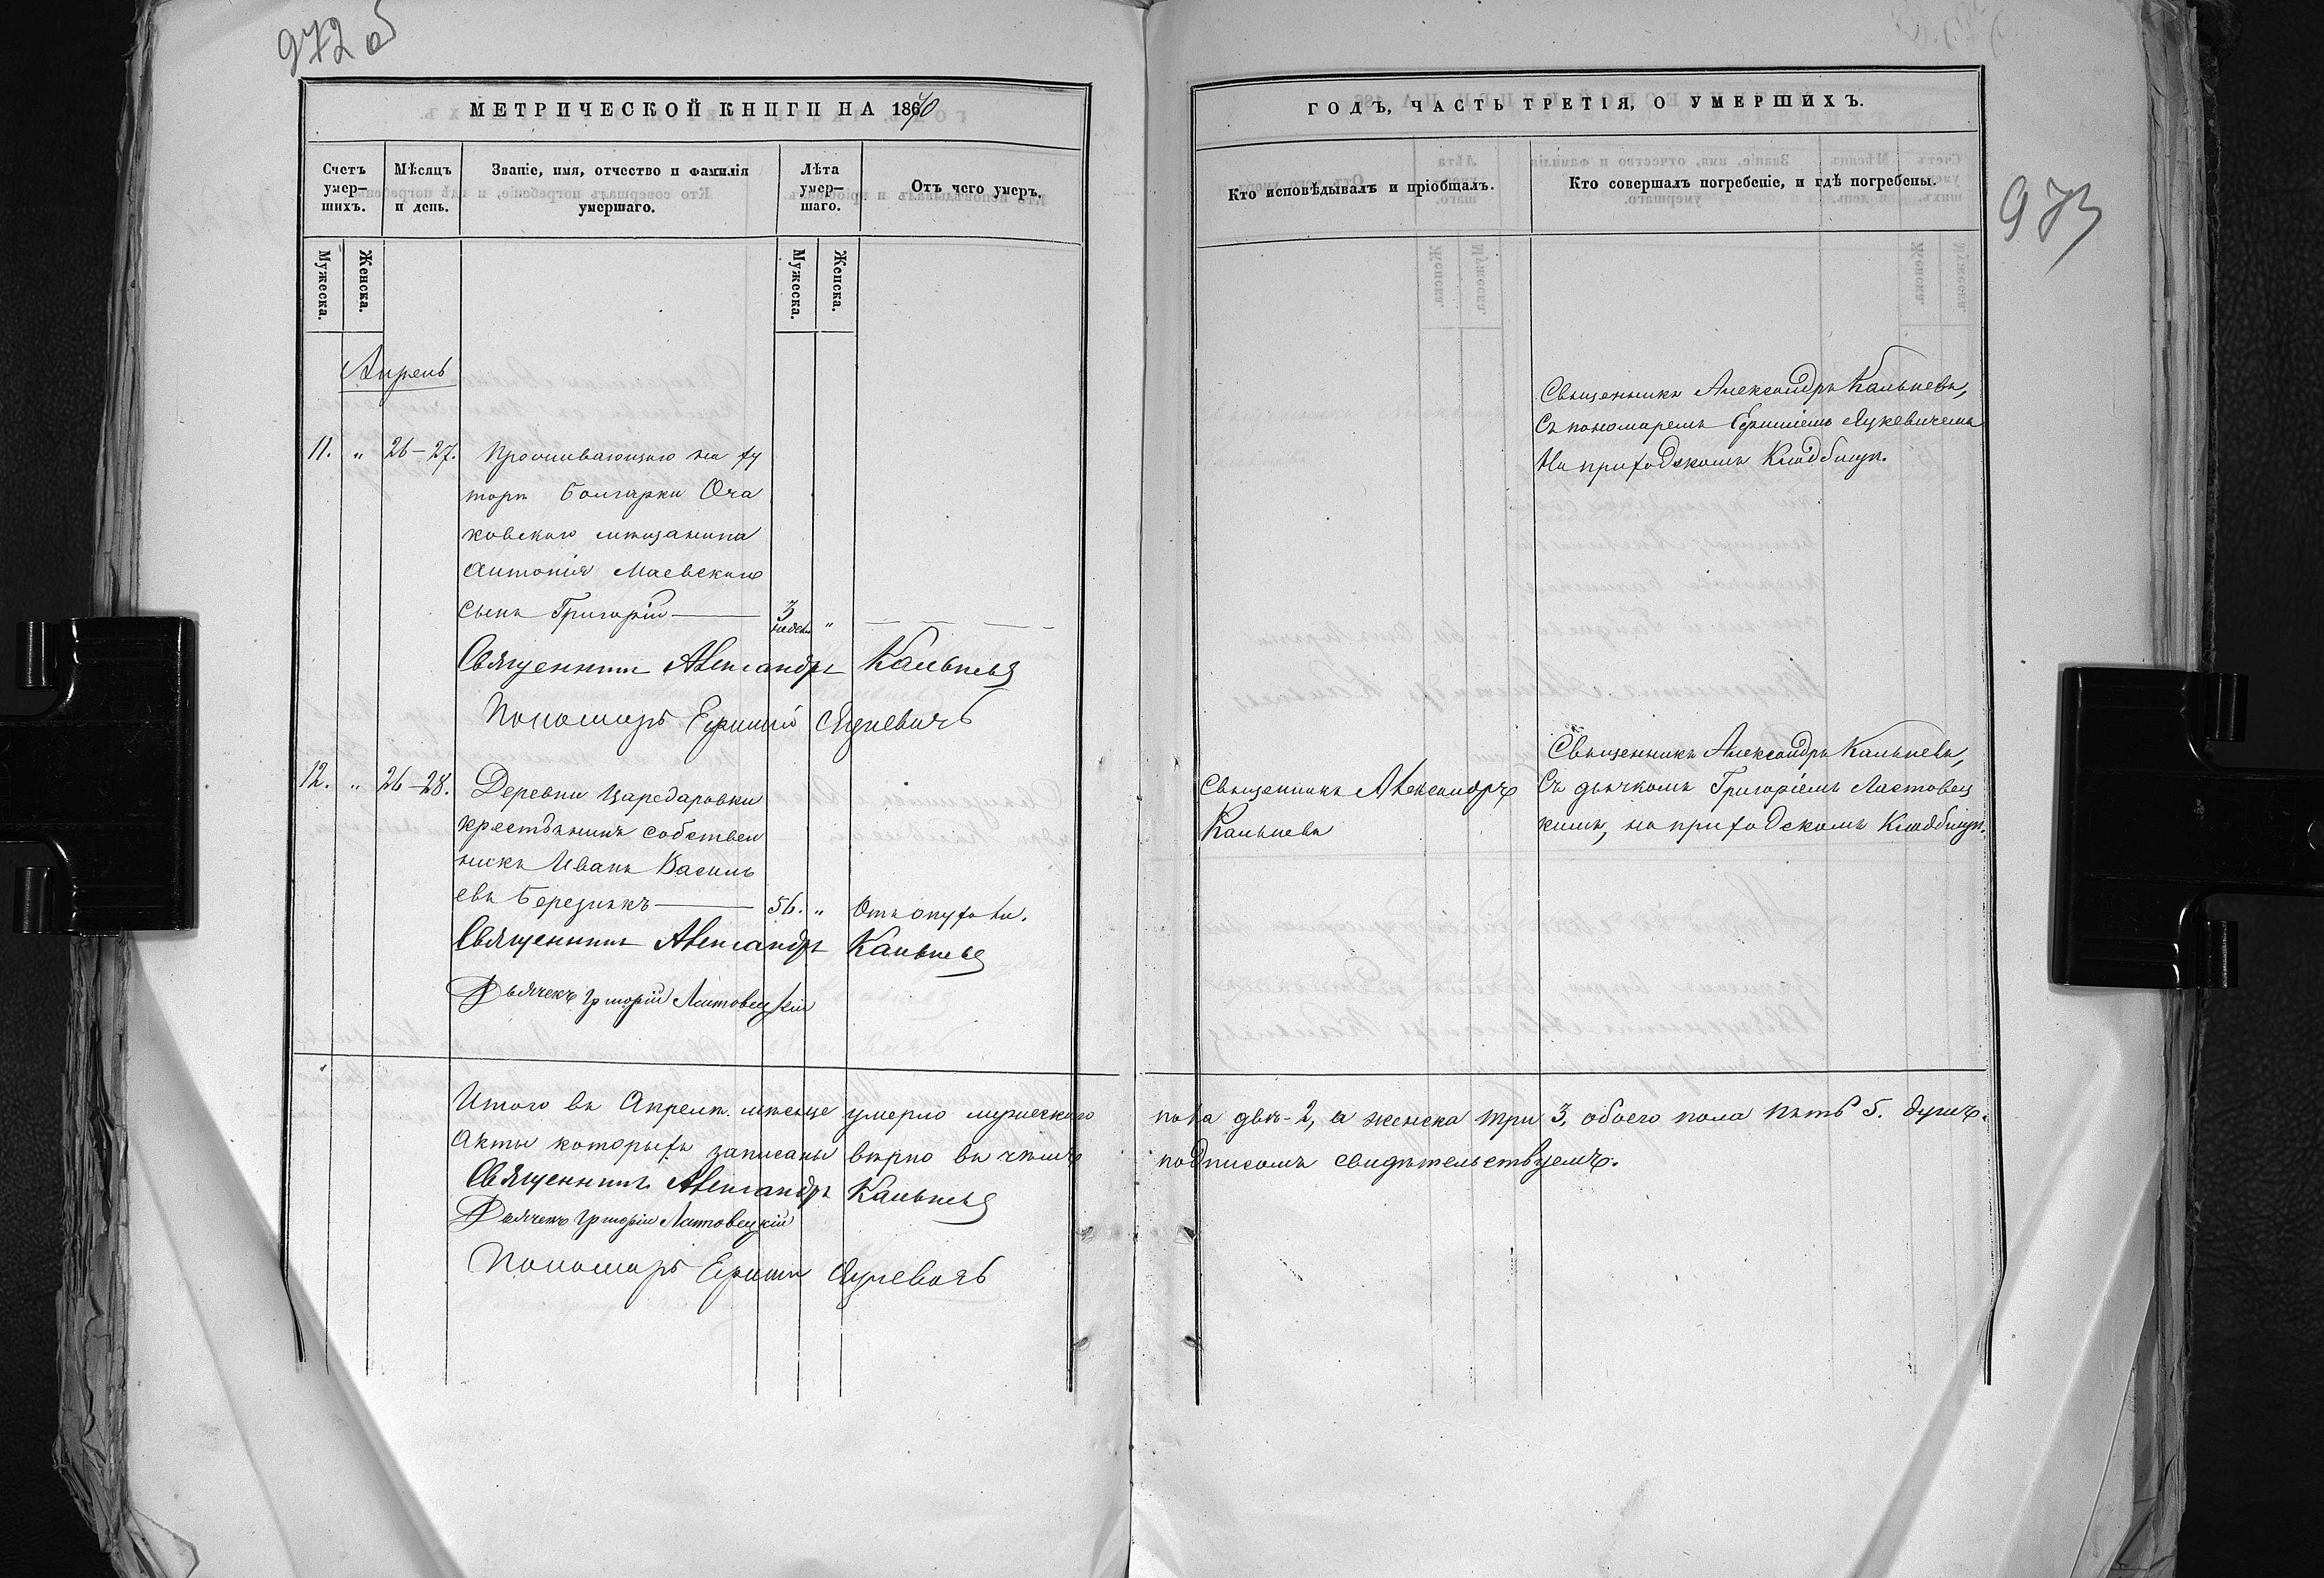 972 об
МЕТРИЧЕСКОЙ КНИГИ НА 1870
Счетъ умер-
шихъ.
Мѣсяцъ
и день.
Званіе, имя, отчество и фамилія
умершаго.
Лѣта
умер-
шаго.
Отъ чего умеръ.
Мужеска.
Женска.
Мужеска.
Женска.
Апрель
11. „ 26-27. Проживающаго на ху
торѣ Болгарки Оча
ковскаго мѣщанина
Антонія Маевскаго
сынъ Григорій 3 недел. „
Священникъ Александръ Кальневъ
Пономарь Ефимій Луцкевичъ
12. „ 26-28. Деревни Царедаровки
крестьянинъ собствен
никъ Иванъ Василь
евъ Березнякъ 56. „ Отъ опухоли.
Священникъ Александръ Кальневъ
Дьячекъ Григорій Ластовецкій
Итого въ Апрелѣ мѣсяце умерло мужескаго
Акты которыхъ записаны вѣрно въ чемъ
Священникъ Александръ Кальневъ
Дьячекъ Григорій Ластовецкій
Пономарь Ефимій
ГОДЪ, ЧАСТЬ ТРЕТІЯ, О УМЕРШИХЪ.
973
Кто исповѣдывалъ и пріобщалъ.
Кто совершалъ погребеніе, и гдѣ погребены.
Священникъ Александръ Кальневъ,
Съ пономаремъ Ефиміемъ Луцкевичемъ
На приходскомъ Кладбищѣ.
Священникъ Александръ
Кальневъ
Священникъ Александръ Кальневъ,
Съ дьячкомъ Григоріемъ Ластовец
кимъ, на приходскомъ Кладбищѣ.
пола двѣ-2, а женска три 3, обоего пола пять 5. душъ.
подписомъ свидѣтельствуемъ.